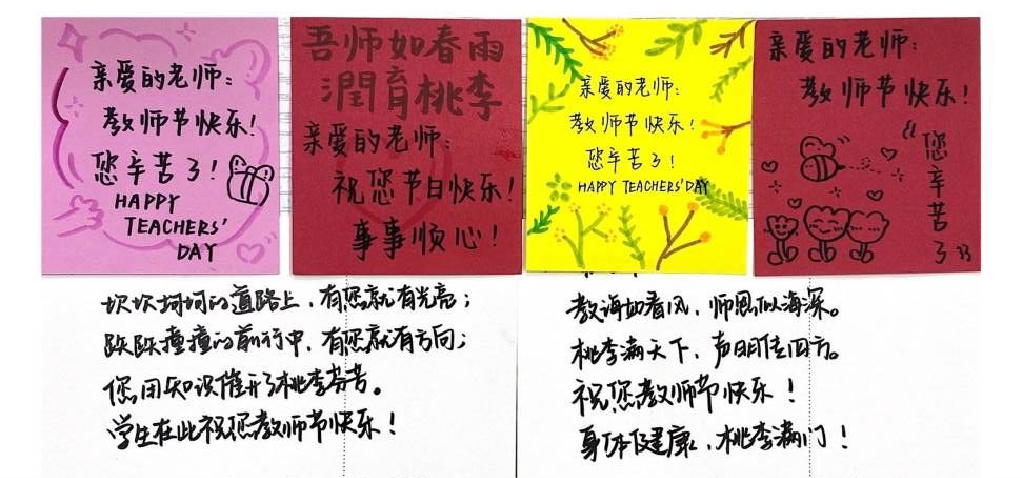 亲爱的老师:
教师节快乐!
您辛苦了!
HAPPY
TEACHERS'
DAY
吾师如春雨
潤育桃李
亲爱的老师:
祝您节日快乐!
事事顺心!
亲爱的老师:
教师节快乐!
您辛苦了!
HAPPY TEACHERS'DAY
亲爱的老师:
教师节快乐!
“您辛苦了”
坎坎坷坷的道路上,有您就有光亮;
跌跌撞撞的前行中,有您就有方向;
您用知识催开了桃李芬芳。
学生在此祝您教师节快乐!
教诲如春风,师恩似海深。
桃李满天下,声明传四方。
祝您教师节快乐!
身体健康,桃李满门!